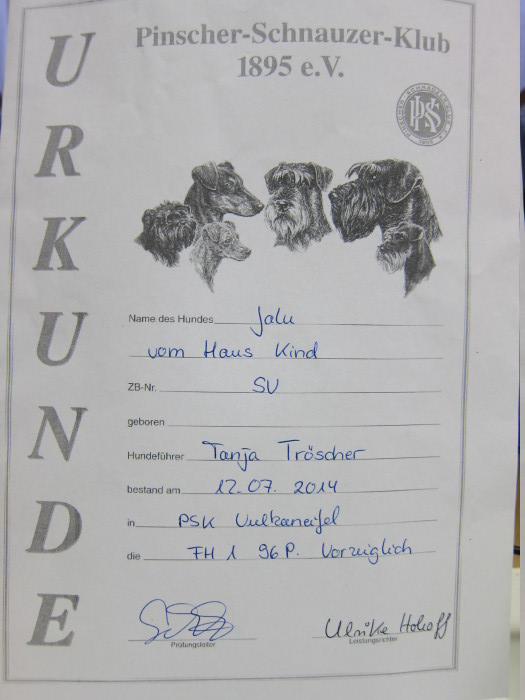 URKUNDE
Pinscher-Schnauzer-Klub
1895 e.V.
PSK
Name des Hundes Jalu
vom Haus Kind
ZB-Nr. SV
geboren
Hundeführer Tanja Tröscher
bestand am 12.07. 2014
in PSK Vulkaneifel
die FH 1 96 P. Vorzüglich
Prüfungsleiter
Ulrike Hohoff
Leistungsrichter